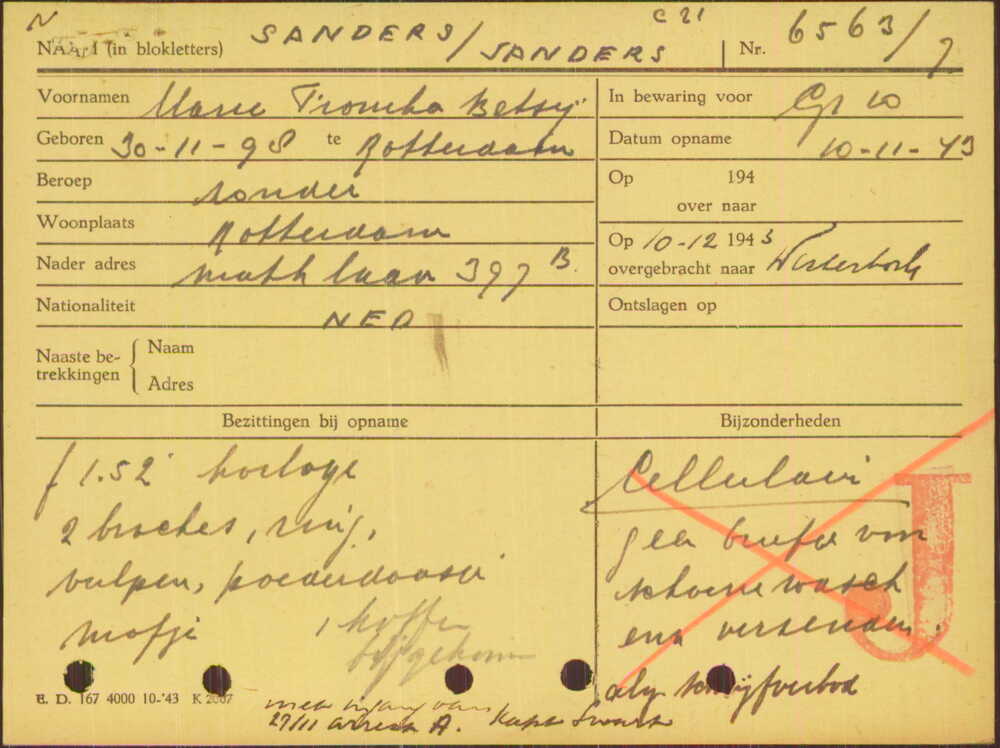 N
C 21
NAAM (in blokletters) SANDERS / SANDERS Nr. 6563/7
Voornamen Marie Tromba Betsij In bewaring voor Gp 10
Geboren 30-11-98 te Rotterdam Datum opname 10-11-43
Beroep zonder Op 194
over naar
Woonplaats Rotterdam Op 10-12 1943
Nader adres Math laan 397 B. overgebracht naar Westerbork
Nationaliteit NED Ontslagen op
Naaste be-trekkingen Naam
Adres
Bezittingen bij opname Bijzonderheden
f 1.52 horloge Cellulair
2 broches, ring, geen briefje van
vulpen, poederdoosje schoone wasch
mofje 1 koffer enz versenden.
bijgekomen
J
alg. schrijfverbod
E. D. 167 4000 10-'43 K 2067
27/11 arrest A.